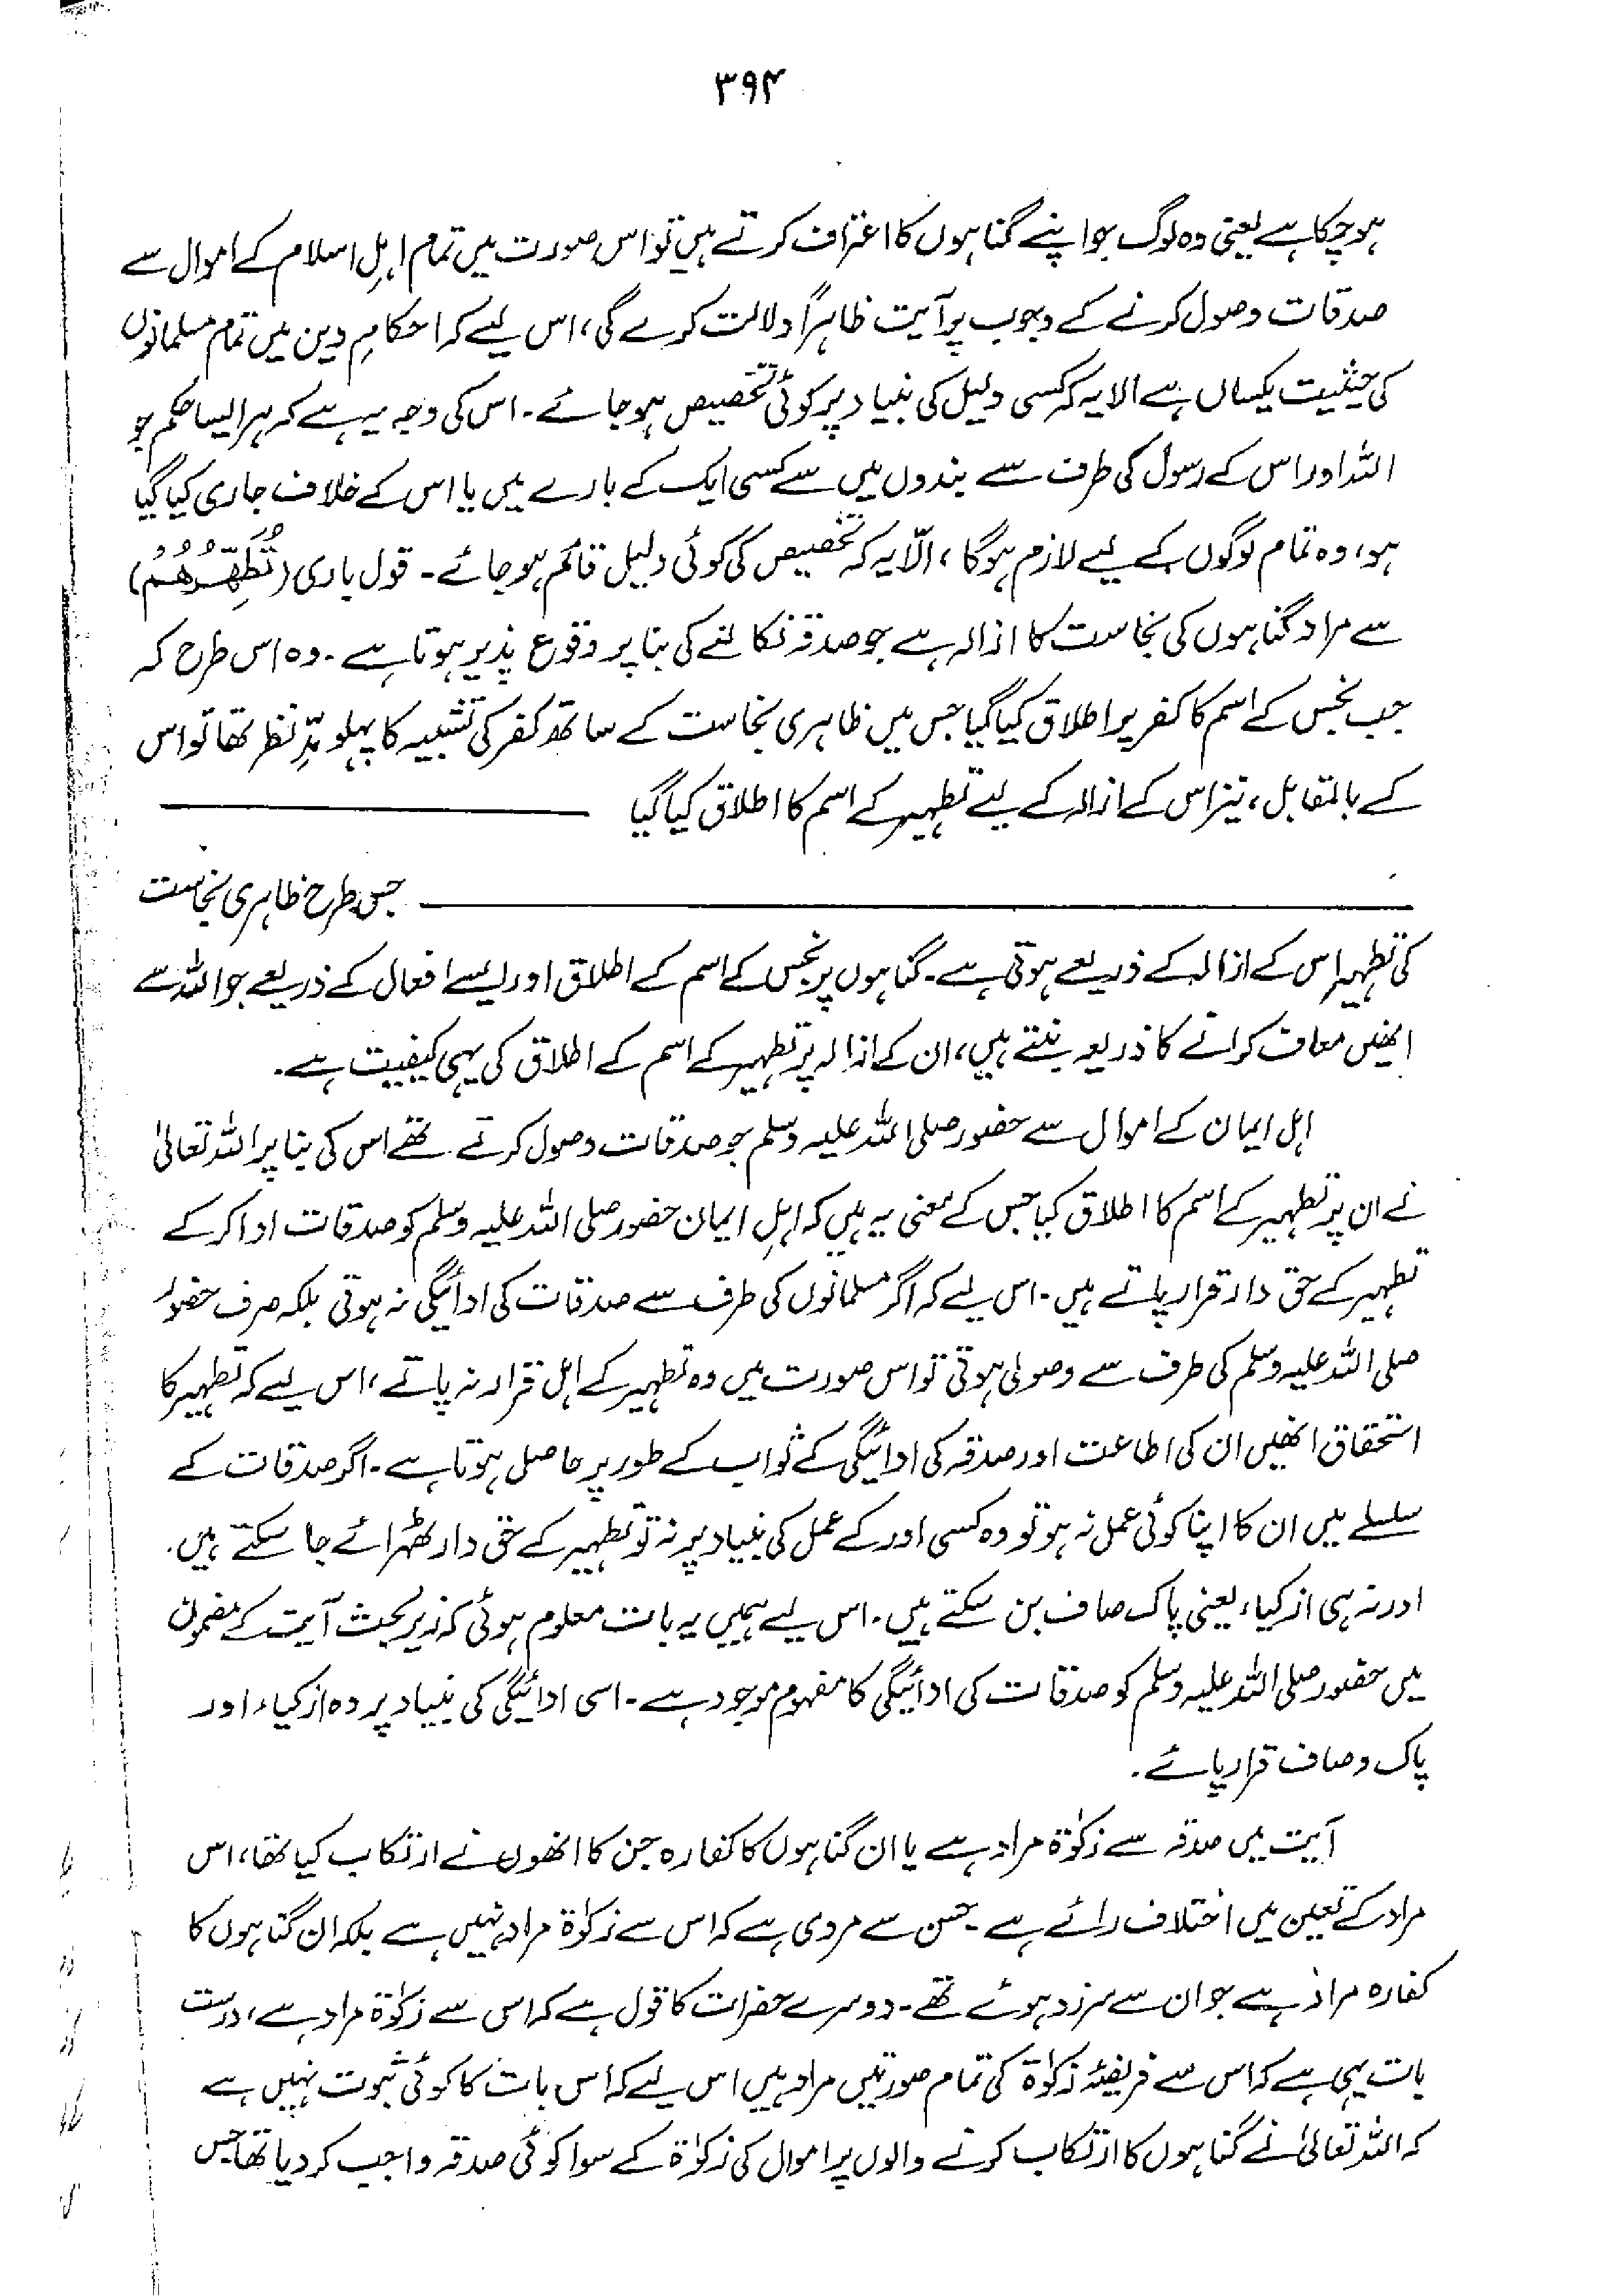 ۳۹۴
ہوچکا ہے یعنی وہ لوگ جو اپنے گناہوں کا اعتراف کرتے ہیں تو اس صورت میں تمام اہلِ اسلام کے اموال سے
صدقات وصول کرنے کے وجوب پر آیت ظاہراً دلالت کرے گی، اس لیے کہ احکامِ دین میں تمام مسلمانوں
کی حیثیت یکساں ہے الا یہ کہ کسی دلیل کی بنیاد پر کوئی تخصیص ہوجائے۔ اس کی وجہ یہ ہے کہ ہر ایسا حکم جو
اللہ اور اس کے رسول کی طرف سے بندوں میں سے کسی ایک کے بارے میں یا اس کے خلاف جاری کیا گیا
ہو، وہ تمام لوگوں کے لیے لازم ہوگا، الّا یہ کہ تخصیص کی کوئی دلیل قائم ہوجائے۔ قول باری (تُطَهِّرُهُمْ)
سے مراد گناہوں کی نجاست کا ازالہ ہے جو صدقہ نکالنے کی بنا پر وقوع پذیر ہوتا ہے۔ وہ اس طرح کہ
جب نجس کے اسم کا کفر پر اطلاق کیا گیا جس میں ظاہری نجاست کے ساتھ کفر کی تشبیہ کا پہلو مدِّنظر تھا تو اس
کے بالمقابل، نیز اس کے ازالہ کے لیے تطہیر کے اسم کا اطلاق کیا گیا
جس طرح ظاہری نجاست
کی تطہیر اس کے ازالہ کے ذریعے ہوتی ہے۔ گناہوں پر نجس کے اسم کے اطلاق اور ایسے افعال کے ذریعے جو اللہ سے
انھیں معاف کرانے کا ذریعہ بنتے ہیں، ان کے ازالہ پر تطہیر کے اسم کے اطلاق کی یہی کیفیت ہے۔
اہل ایمان کے اموال سے حضور صلی اللہ علیہ وسلم جو صدقات وصول کرتے تھے اس کی بنا پر اللہ تعالیٰ
نے ان پر تطہیر کے اسم کا اطلاق کیا جس کے معنی یہ ہیں کہ اہلِ ایمان حضور صلی اللہ علیہ وسلم کو صدقات ادا کرکے
تطہیر کے حق دار قرار پاتے ہیں۔ اس لیے کہ اگر مسلمانوں کی طرف سے صدقات کی ادائیگی نہ ہوتی بلکہ صرف حضور
صلی اللہ علیہ وسلم کی طرف سے وصولی ہوتی تو اس صورت میں وہ تطہیر کے اہل قرار نہ پاتے، اس لیے کہ تطہیر کا
استحقاق انھیں ان کی اطاعت اور صدقہ کی ادائیگی کے ثواب کے طور پر حاصل ہوتا ہے۔ اگر صدقات کے
سلسلے میں ان کا اپنا کوئی عمل نہ ہو تو وہ کسی اور کے عمل کی بنیاد پر نہ تو تطہیر کے حق دار ٹھہرائے جا سکتے ہیں۔
اور نہ ہی ازکیاء یعنی پاک صاف بن سکتے ہیں۔ اس لیے ہمیں یہ بات معلوم ہوئی کہ زیر بحث آیت کے مضمون
میں حضور صلی اللہ علیہ وسلم کو صدقات کی ادائیگی کا مفہوم موجود ہے۔ اسی ادائیگی کی بنیاد پر وہ ازکیاء اور
پاک وصاف قرار پائے۔
آیت میں صدقہ سے زکوٰۃ مراد ہے یا ان گناہوں کا کفارہ جن کا انھوں نے ارتکاب کیا تھا، اس
مراد کے تعین میں اختلاف رائے ہے۔ حسن سے مروی ہے کہ اس سے زکوٰۃ مراد نہیں ہے بلکہ ان گناہوں کا
کفارہ مراد ہے جو ان سے سرزد ہوئے تھے۔ دوسرے حضرات کا قول ہے کہ اس سے زکوٰۃ مراد ہے، درست
بات یہی ہے کہ اس سے فریضۂ زکوٰۃ کی تمام صورتیں مراد ہیں اس لیے کہ اس بات کا کوئی ثبوت نہیں ہے
کہ اللہ تعالیٰ نے گناہوں کا ارتکاب کرنے والوں پر اموال کی زکوٰۃ کے سوا کوئی صدقہ واجب کر دیا تھا جس